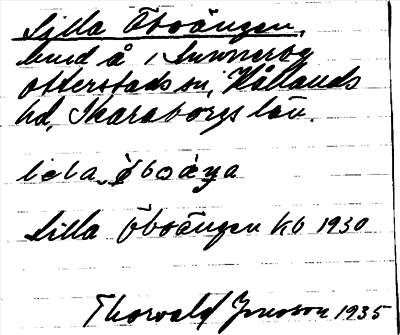 Lilla Öboängen,
hmd å i Sunnerby
Otterstads sn, Kållands
hd, Skaraborgs län.
Lilla Öboängen kb 1930
Thorvald Jonsson 1935